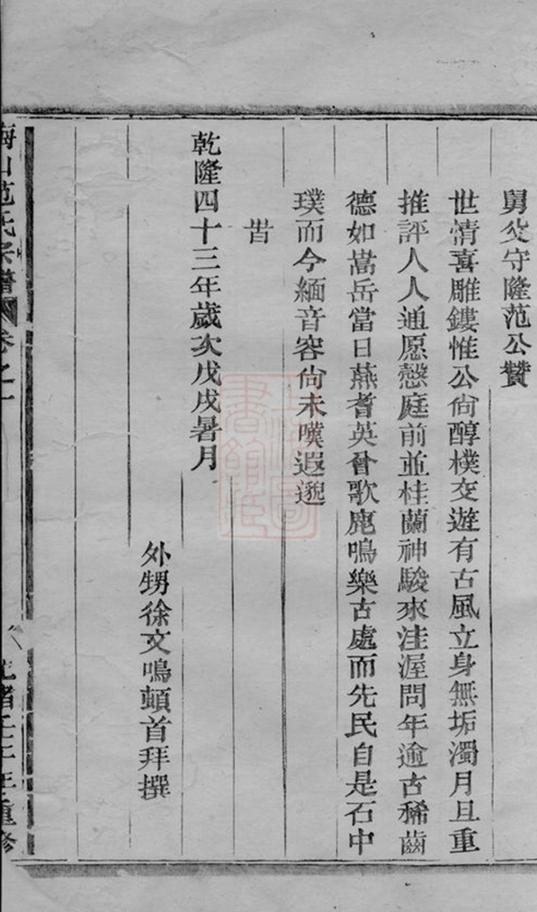 舅父守隆范公贊
世情喜雕鏤惟公尙醇樸交遊有古風立身無垢濁月旦重
推評人人通愿慤庭前並桂蘭神駿來洼渥問年逾古稀齒
德如嵩岳當日燕耆英會歌鹿鳴樂古處而先民自是石中
璞而今緬音容尙未嘆遐邈
旹
乾隆四十三年歲次戊戌暑月
外甥徐文鳴頓首拜撰
范氏宗譜 卷之一
光緒壬午年重修